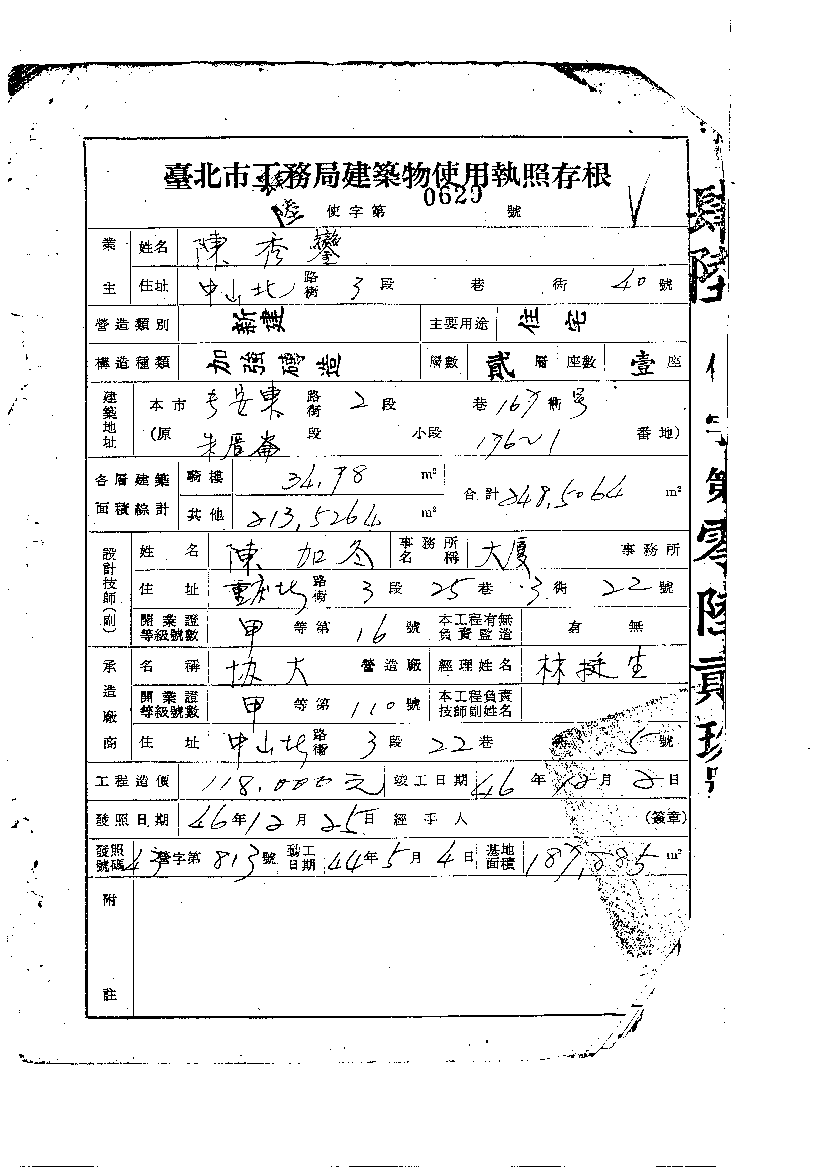 臺北市工務局建築物使用執照存根
肆陸 使字第 0620 號
業主 姓名 陳秀鑾
住址 中山北 路街 3 段 巷 街 40 號
營造類別 新建 主要用途 住宅
構造種類 加強磚造 層數 貳 層 座數 壹 座
建築地址 本市 長安東 路街 2 段 巷 167 街 号
(原 朱厝崙 段 小段 176~1 番地)
各層建築面積綜計 騎樓 34.98 m² 合計 248.5064 m²
其他 213.5264 m²
設計技師(副) 姓名 陳加冬 事務所名稱 大厦 事務所
住址 重慶北 路街 3 段 25 巷 3 街 22 號
開業證等級號數 甲 等第 16 號 本工程有無負責監造 有 無
承造廠商 名稱 坂大 營造廠 經理姓名 林挺生
開業證等級號數 甲 等第 110 號 本工程負責技師副姓名
住址 中山北 路街 3 段 22 巷 5 號
工程造價 118.000元 竣工日期 46 年 12 月 2 日
發照日期 46 年 12 月 25 日 經手人 (簽章)
發照號碼 43 營字第 813 號 動工日期 44 年 5 月 4 日 基地面積 187.885 m²
附註
肆陸 使字第零陸貳玲號